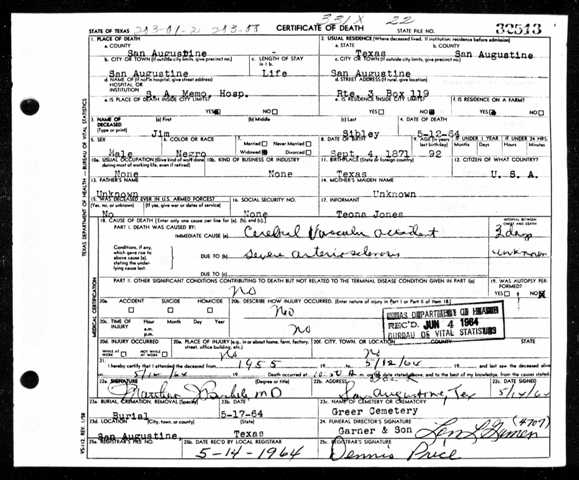 331X 22
STATE OF TEXAS 243-01-2 243-03 CERTIFICATE OF DEATH STATE FILE NO. 32513
1. PLACE OF DEATH 2. USUAL RESIDENCE (Where deceased lived. If institution: residence before admission)
a. COUNTY a. STATE b. COUNTY
San Augustine - Texas San Augustine
b. CITY OR TOWN (If outside city limits, give precinct no.) c. LENGTH OF STAY in 1 b. c. CITY OR TOWN (If outside city limits, give precinct no.)
San Augustine Life San Augustine
d. NAME OF (If not in hospital, give street address) HOSPITAL OR INSTITUTION d. STREET ADDRESS (If rural, give location)
S. A. Memo. Hosp. Rte. 3 Box 119
e. IS PLACE OF DEATH INSIDE CITY LIMITS? e. IS RESIDENCE INSIDE CITY LIMITS? f. IS RESIDENCE ON A FARM?
YES NO YES NO YES NO
3. NAME OF DECEASED (Type or print) (a) First (b) Middle (c) Last 4. DATE OF DEATH
Jim Sibley 5-12-64
5. SEX 6. COLOR OR RACE 7. Married Never Married Widowed Divorced 8. DATE OF BIRTH 9. AGE (In years last birthday) IF UNDER 1 YEAR Months Days IF UNDER 24 HRS. Hours Minutes
Male Negro Sept. 4, 1871 92
10a. USUAL OCCUPATION (Give kind of work done during most of working life, even if retired) 10b. KIND OF BUSINESS OR INDUSTRY 11. BIRTHPLACE (State or foreign country) 12. CITIZEN OF WHAT COUNTRY?
None None Texas U. S. A.
13. FATHER'S NAME 14. MOTHER'S MAIDEN NAME
Unknown Unknown
15. WAS DECEASED EVER IN U.S. ARMED FORCES? (Yes, no, or unknown) (If yes, give war or dates of service) 16. SOCIAL SECURITY NO. 17. INFORMANT
No None Teona Jones
18. CAUSE OF DEATH [Enter only one cause per line for (a), (b), and (c).] INTERVAL BETWEEN ONSET AND DEATH
PART I. DEATH WAS CAUSED BY:
IMMEDIATE CAUSE (a) Cerebral Vascular accident 3 days
Conditions, if any, which gave rise to above cause (a), stating the underlying cause last.
DUE TO (b) Severe arteriosclerosis unknown
DUE TO (c)
PART II. OTHER SIGNIFICANT CONDITIONS CONTRIBUTING TO DEATH BUT NOT RELATED TO THE TERMINAL DISEASE CONDITION GIVEN IN PART I(a) 19. WAS AUTOPSY PERFORMED?
No YES NO
20a. ACCIDENT SUICIDE HOMICIDE 20b. DESCRIBE HOW INJURY OCCURRED. (Enter nature of injury in Part I or Part II of item 18.)
No
20c. TIME OF INJURY Hour Month Day Year a.m. p.m.
No
TEXAS DEPARTMENT OF HEALTH
REC'D JUN 4 1964
BUREAU OF VITAL STATISTICS
20d. INJURY OCCURRED WHILE AT WORK NOT WHILE AT WORK 20e. PLACE OF INJURY (e.g. in or about home, farm, factory, street, office building, etc.) 20f. CITY, TOWN, OR LOCATION COUNTY STATE
No No
21. I hereby certify that I attended the deceased from 1955 to 5/12/64 and last saw the deceased alive on
5/12/64 Death occurred at on the date stated above, and to the best of my knowledge, from the causes stated.
22a. SIGNATURE (Degree or title) 22b. ADDRESS 22c. DATE SIGNED
MD San Augustine, Tex 5/14/64
23a. BURIAL, CREMATION, REMOVAL (Specify) 23b. DATE 23c. NAME OF CEMETERY OR CREMATORY
Burial 5-17-64 Greer Cemetery
23d. LOCATION (City, town, or county) (State) 24. FUNERAL DIRECTOR'S SIGNATURE (4707)
San Augustine, Texas Garner & Son
25a. REGISTRAR'S FILE NO. 25b. DATE REC'D BY LOCAL REGISTRAR 25c. REGISTRAR'S SIGNATURE
5-14-1964 Dennis Price
TEXAS DEPARTMENT OF HEALTH — BUREAU OF VITAL STATISTICS
MEDICAL CERTIFICATION
VS-112 REV. 1/58